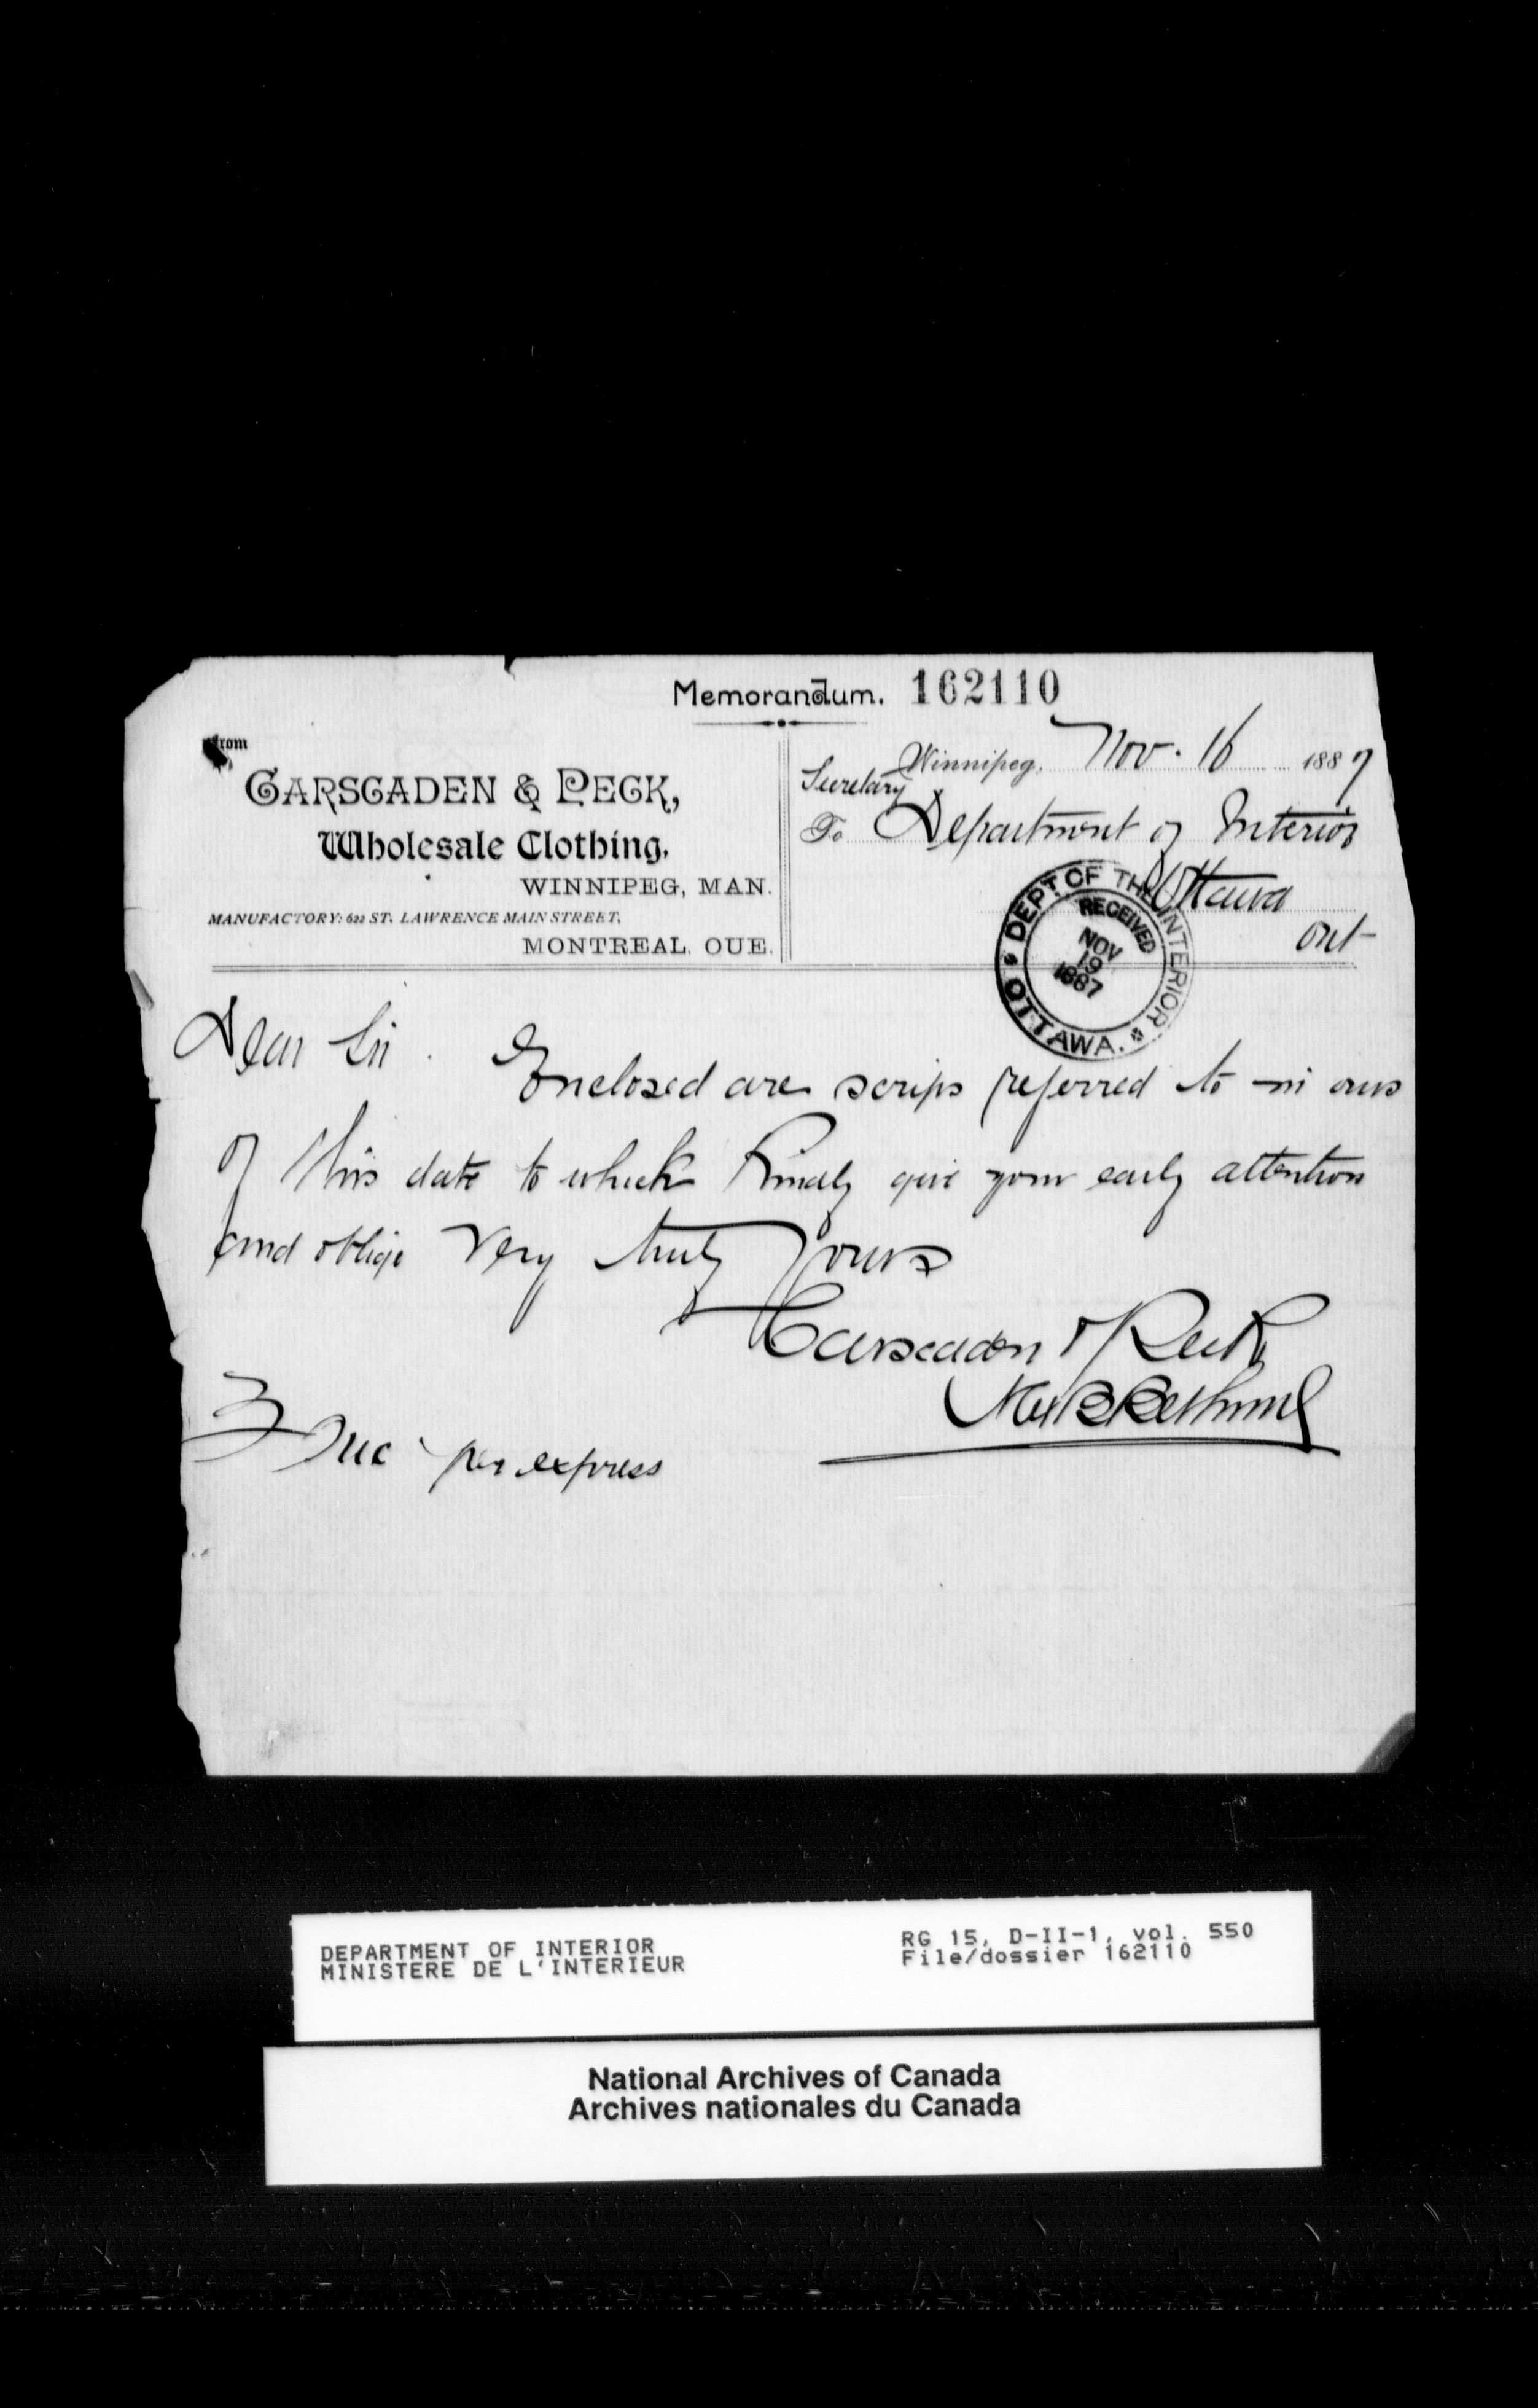 Memorandum. 162110
From
CARSCADEN & PECK,
Wholesale Clothing,
WINNIPEG, MAN.
MANUFACTORY: 622 ST. LAWRENCE MAIN STREET,
MONTREAL, QUE.
Winnipeg, Nov. 16 1887
Secretary
To Department of Interior
Ottawa
Ont
DEPT. OF THE INTERIOR
RECEIVED
NOV
19
1887
OTTAWA.
Dear Sir. Enclosed are scrips referred to in ours
of this date to which kindly give your early attention
and oblige Very truly Yours
Carscaden & Peck
Bethune
3 Enc per express
DEPARTMENT OF INTERIOR
MINISTERE DE L'INTERIEUR
RG 15, D-II-1, vol. 550
File/dossier 162110
National Archives of Canada
Archives nationales du Canada